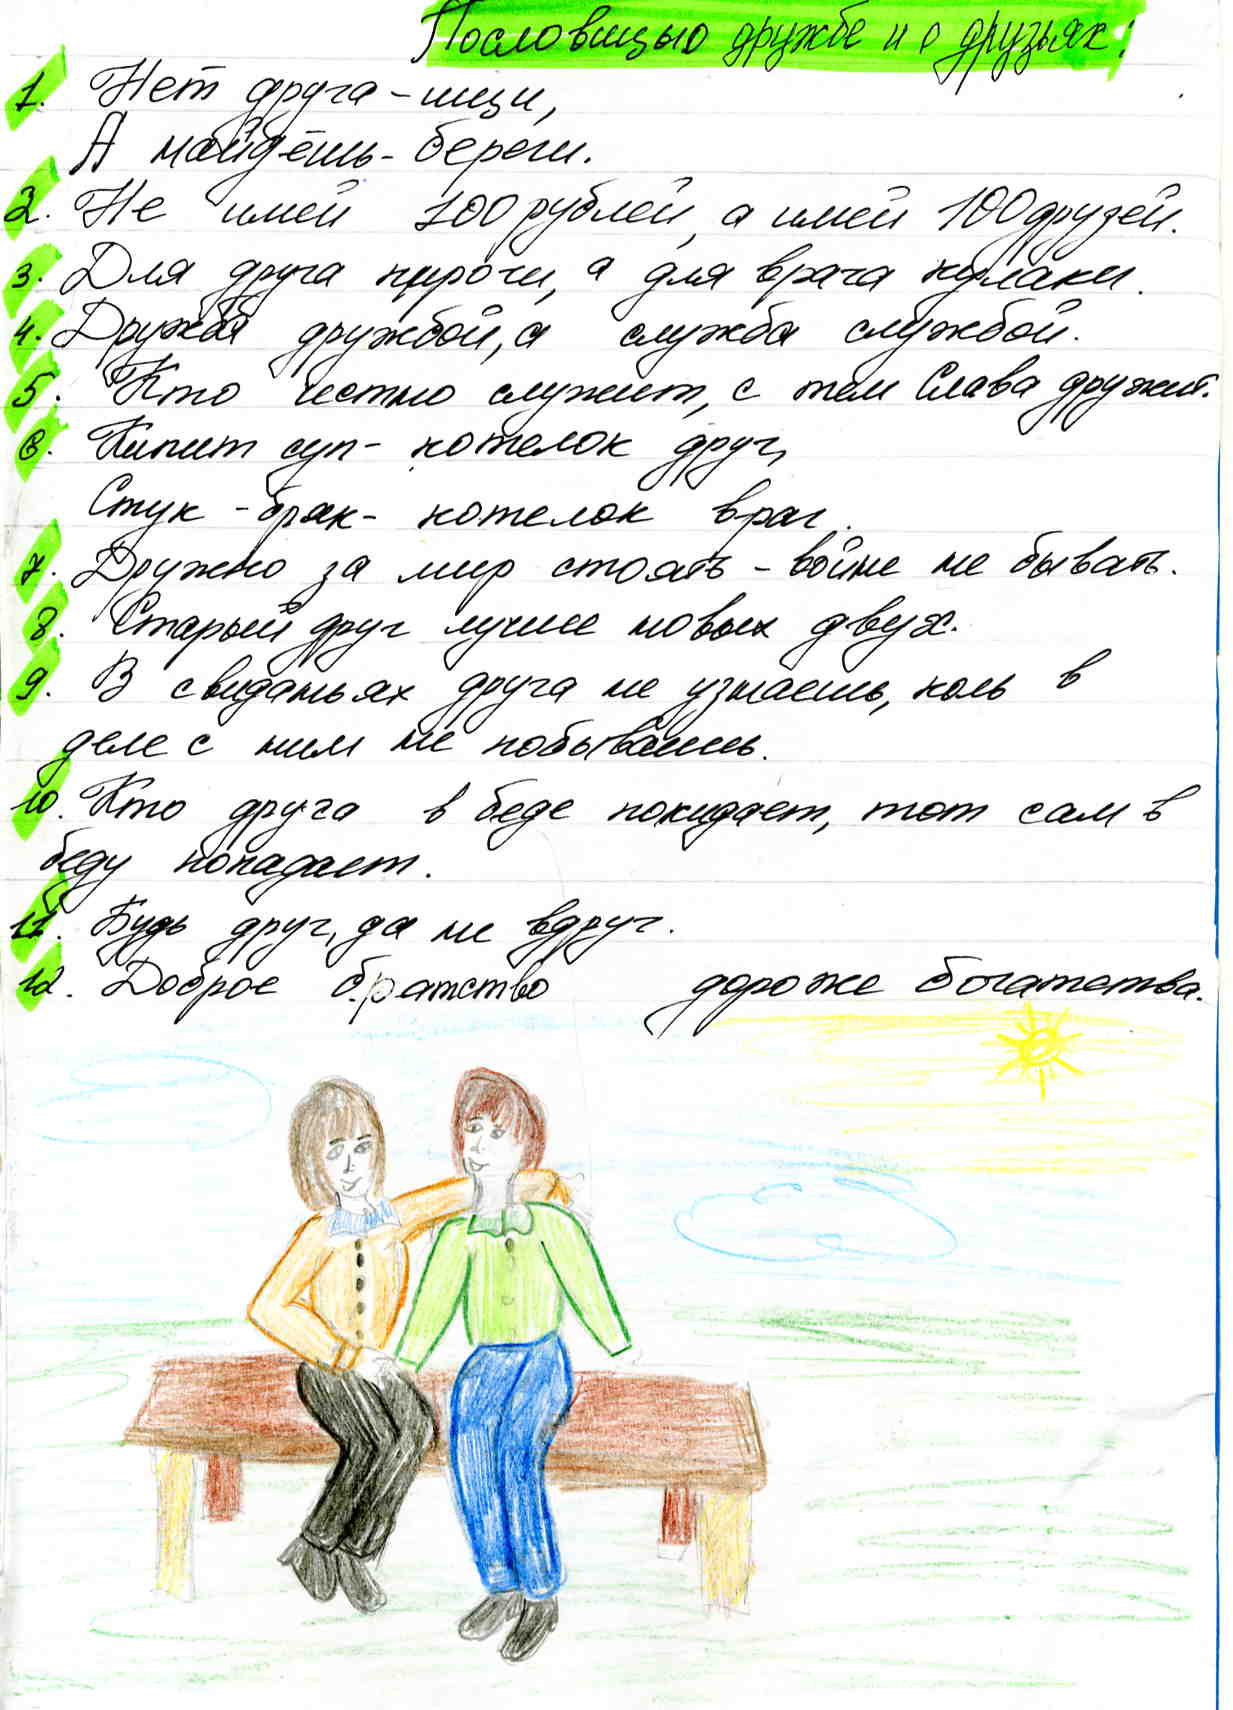 Пословицы о дружбе и о друзьях:
1. Нет друга - ищи,
А найдёшь - береги.
2. Не имей 100 рублей, а имей 100 друзей.
3. Для друга пироги, а для врага кулаки.
4. Дружба дружбой, а служба службой.
5. Кто честно служит, с тем Слава дружит.
6. Кипит суп - котелок друг,
Стук - бряк - котелок враг.
7. Дружно за мир стоять - войне не бывать.
8. Старый друг лучше новых двух.
9. В свиданьях друга не узнаешь, коль в
деле с ним не побываешь.
10. Кто друга в беде покидает, тот сам в
беду попадает.
11. Будь друг, да не вдруг.
12. Доброе братство дороже богатства.